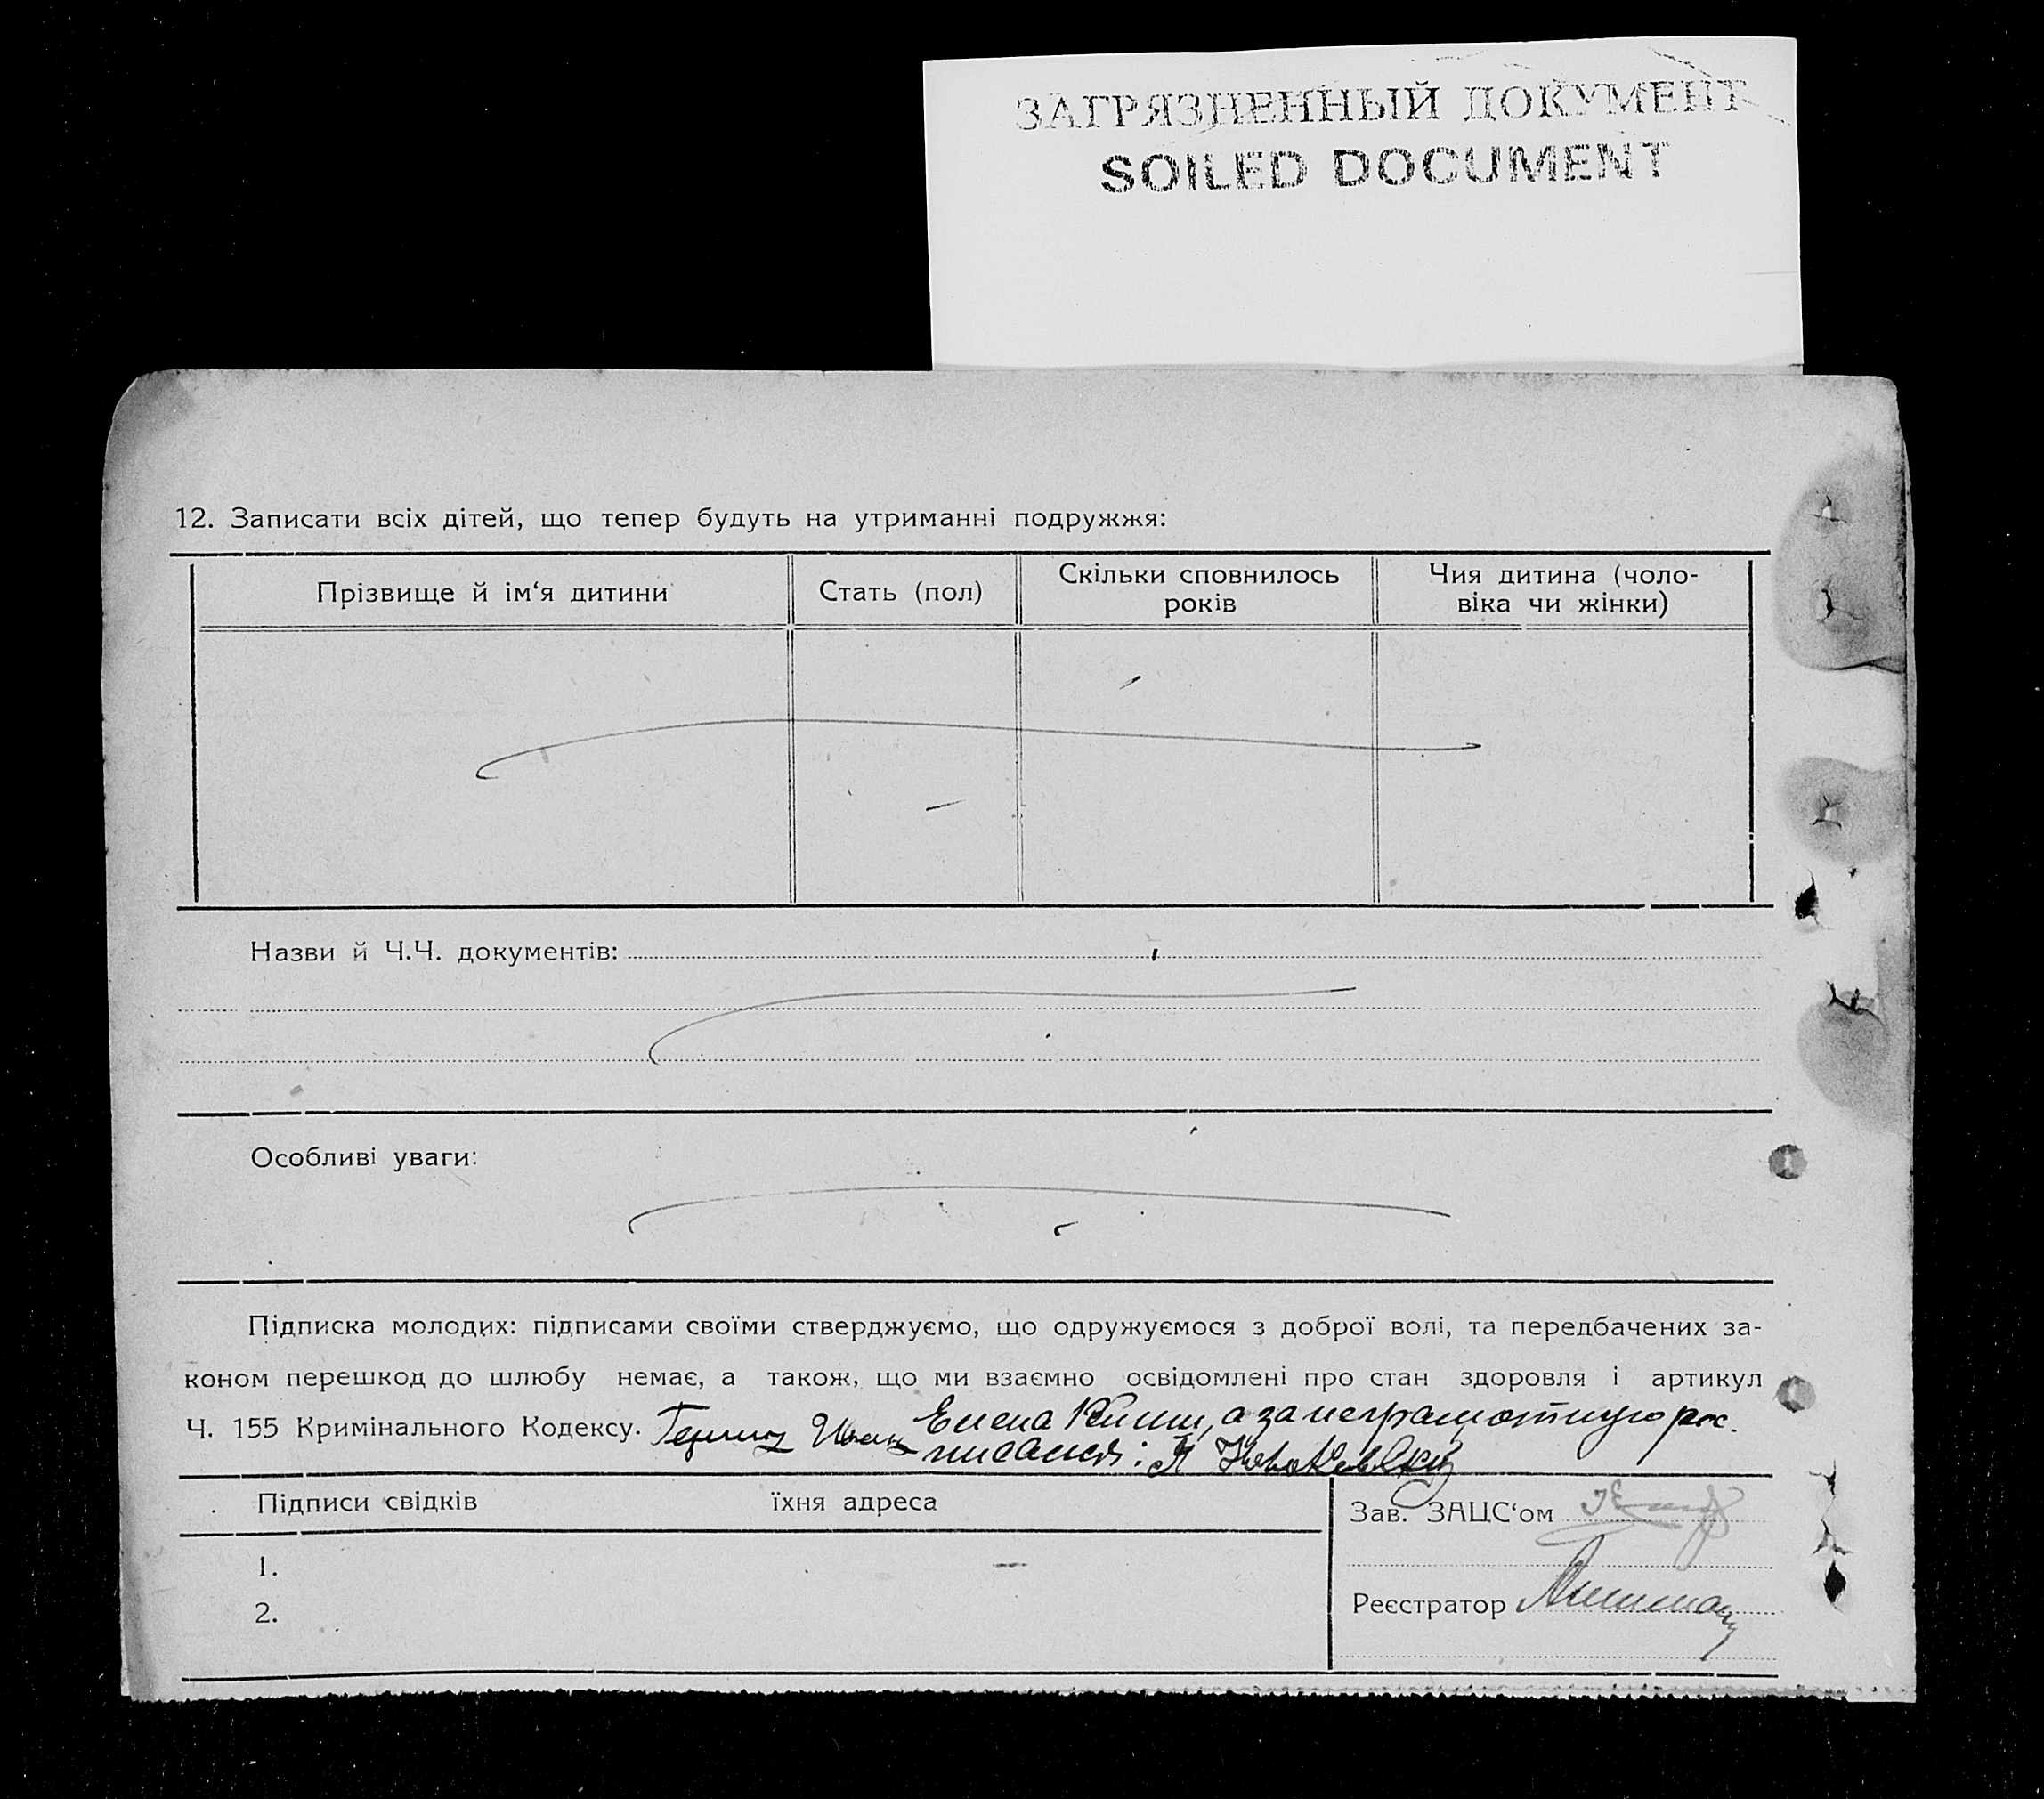 ЗАГРЯЗНЕННЫЙ ДОКУМЕНТ
SOILED DOCUMENT
12. Записати всіх дітей, що тепер будуть на утриманні подружжя:
Прізвище й ім‘я дитини
Стать (пол)
Скільки сповнилось
років
Чия дитина (чоло-
віка чи жінки)
Назви й Ч.Ч. документів:
Особливі уваги:
Підписка молодих: підписами своїми стверджуємо, що одружуємося з доброї волі, та передбачених за-
коном перешкод до шлюбу немає, а також, що ми взаємно освідомлені про стан здоровля і артикул
Ч. 155 Кримінального Кодексу. Елена, а за неграмотную рос.
писался: Я
Підписи свідків їхня адреса
1.
2.
Зав. ЗАЦС‘ом
Реєстратор